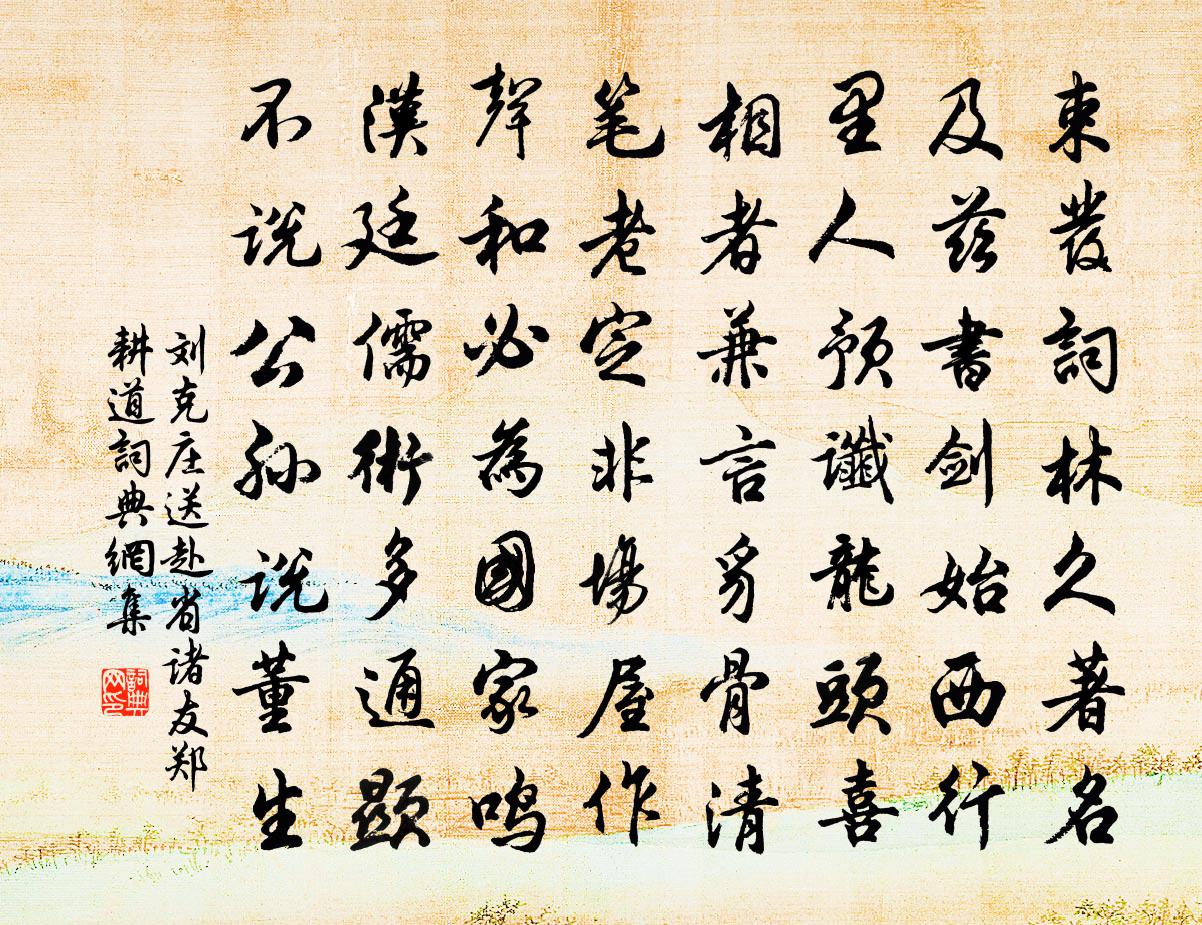 束發詞林久著名
及茲書劍始西行
里人預讖龍頭喜
相者兼言豸骨清
笔老定非場屋作
聲和必為國家鳴
漢廷儒術多通顯
不説公孫説董生
刘克庄送赴省诸友郑
耕道詞典網集
詞典
网印